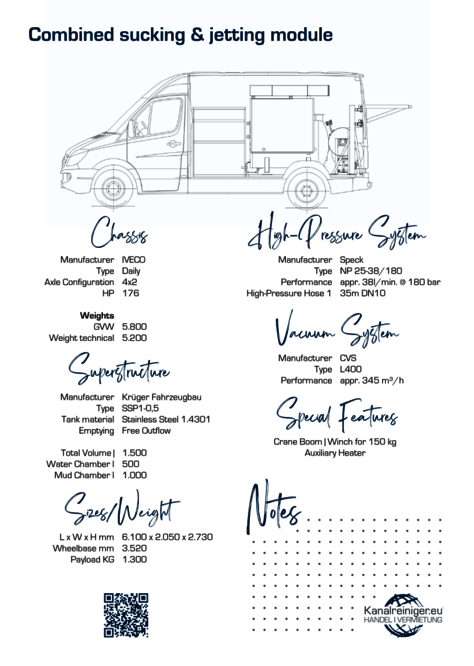 Combined sucking & jetting module
Chassis
Manufacturer IVECO
Type Daily
Axle Configuration 4x2
HP 176
Weights
GVW 5.800
Weight technical 5.200
Superstructure
Manufacturer Krüger Fahrzeugbau
Type SSP1-0,5
Tank material Stainless Steel 1.4301
Emptying Free Outflow
Total Volume l 1.500
Water Chamber l 500
Mud Chamber l 1.000
Sizes/Weight
L x W x H mm 6.100 x 2.050 x 2.730
Wheelbase mm 3.520
Payload KG 1.300
High-Pressure System
Manufacturer Speck
Type NP 25-38/180
Performance appr. 38l/min. @ 180 bar
High-Pressure Hose 1 35m DN10
Vacuum System
Manufacturer CVS
Type L400
Performance appr. 345 m³/h
Special Features
Crane Boom | Winch for 150 kg
Auxiliary Heater
Notes
Kanalreiniger.eu
HANDEL I VERMIETUNG